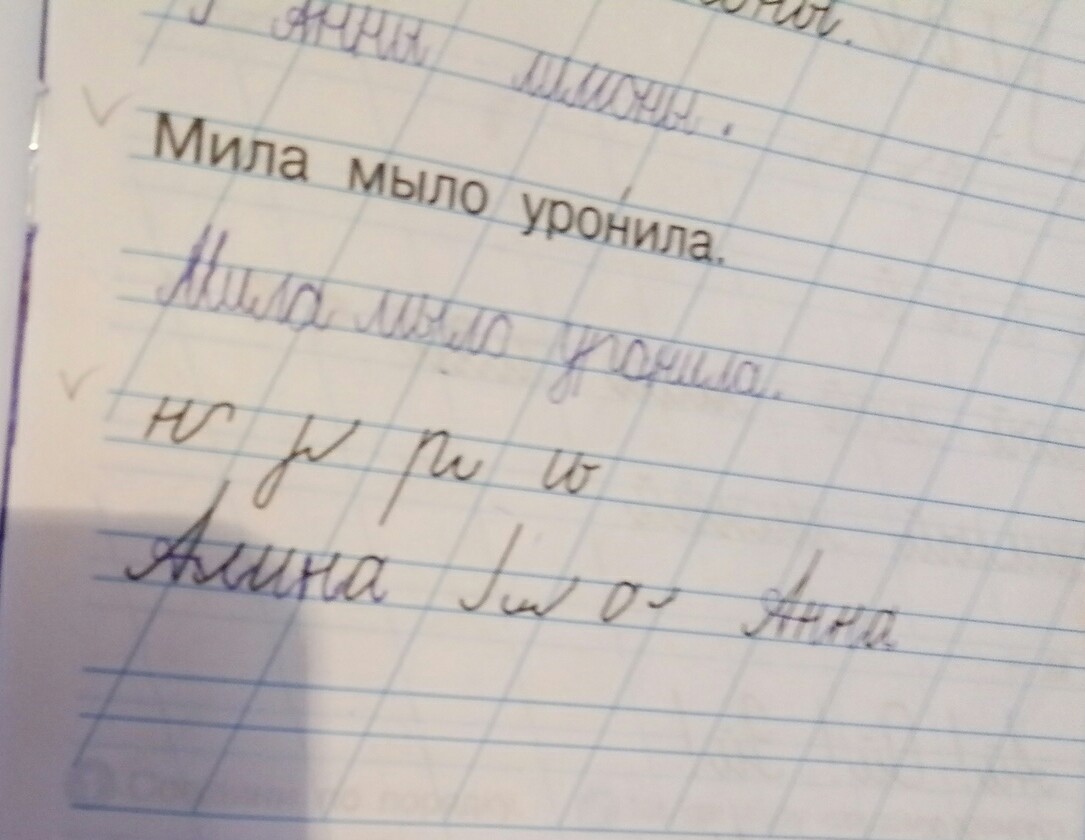 Анны лимоны.
Мила мыло уронила.
Мила мыло уронила.
н у р и
Алина о Анна